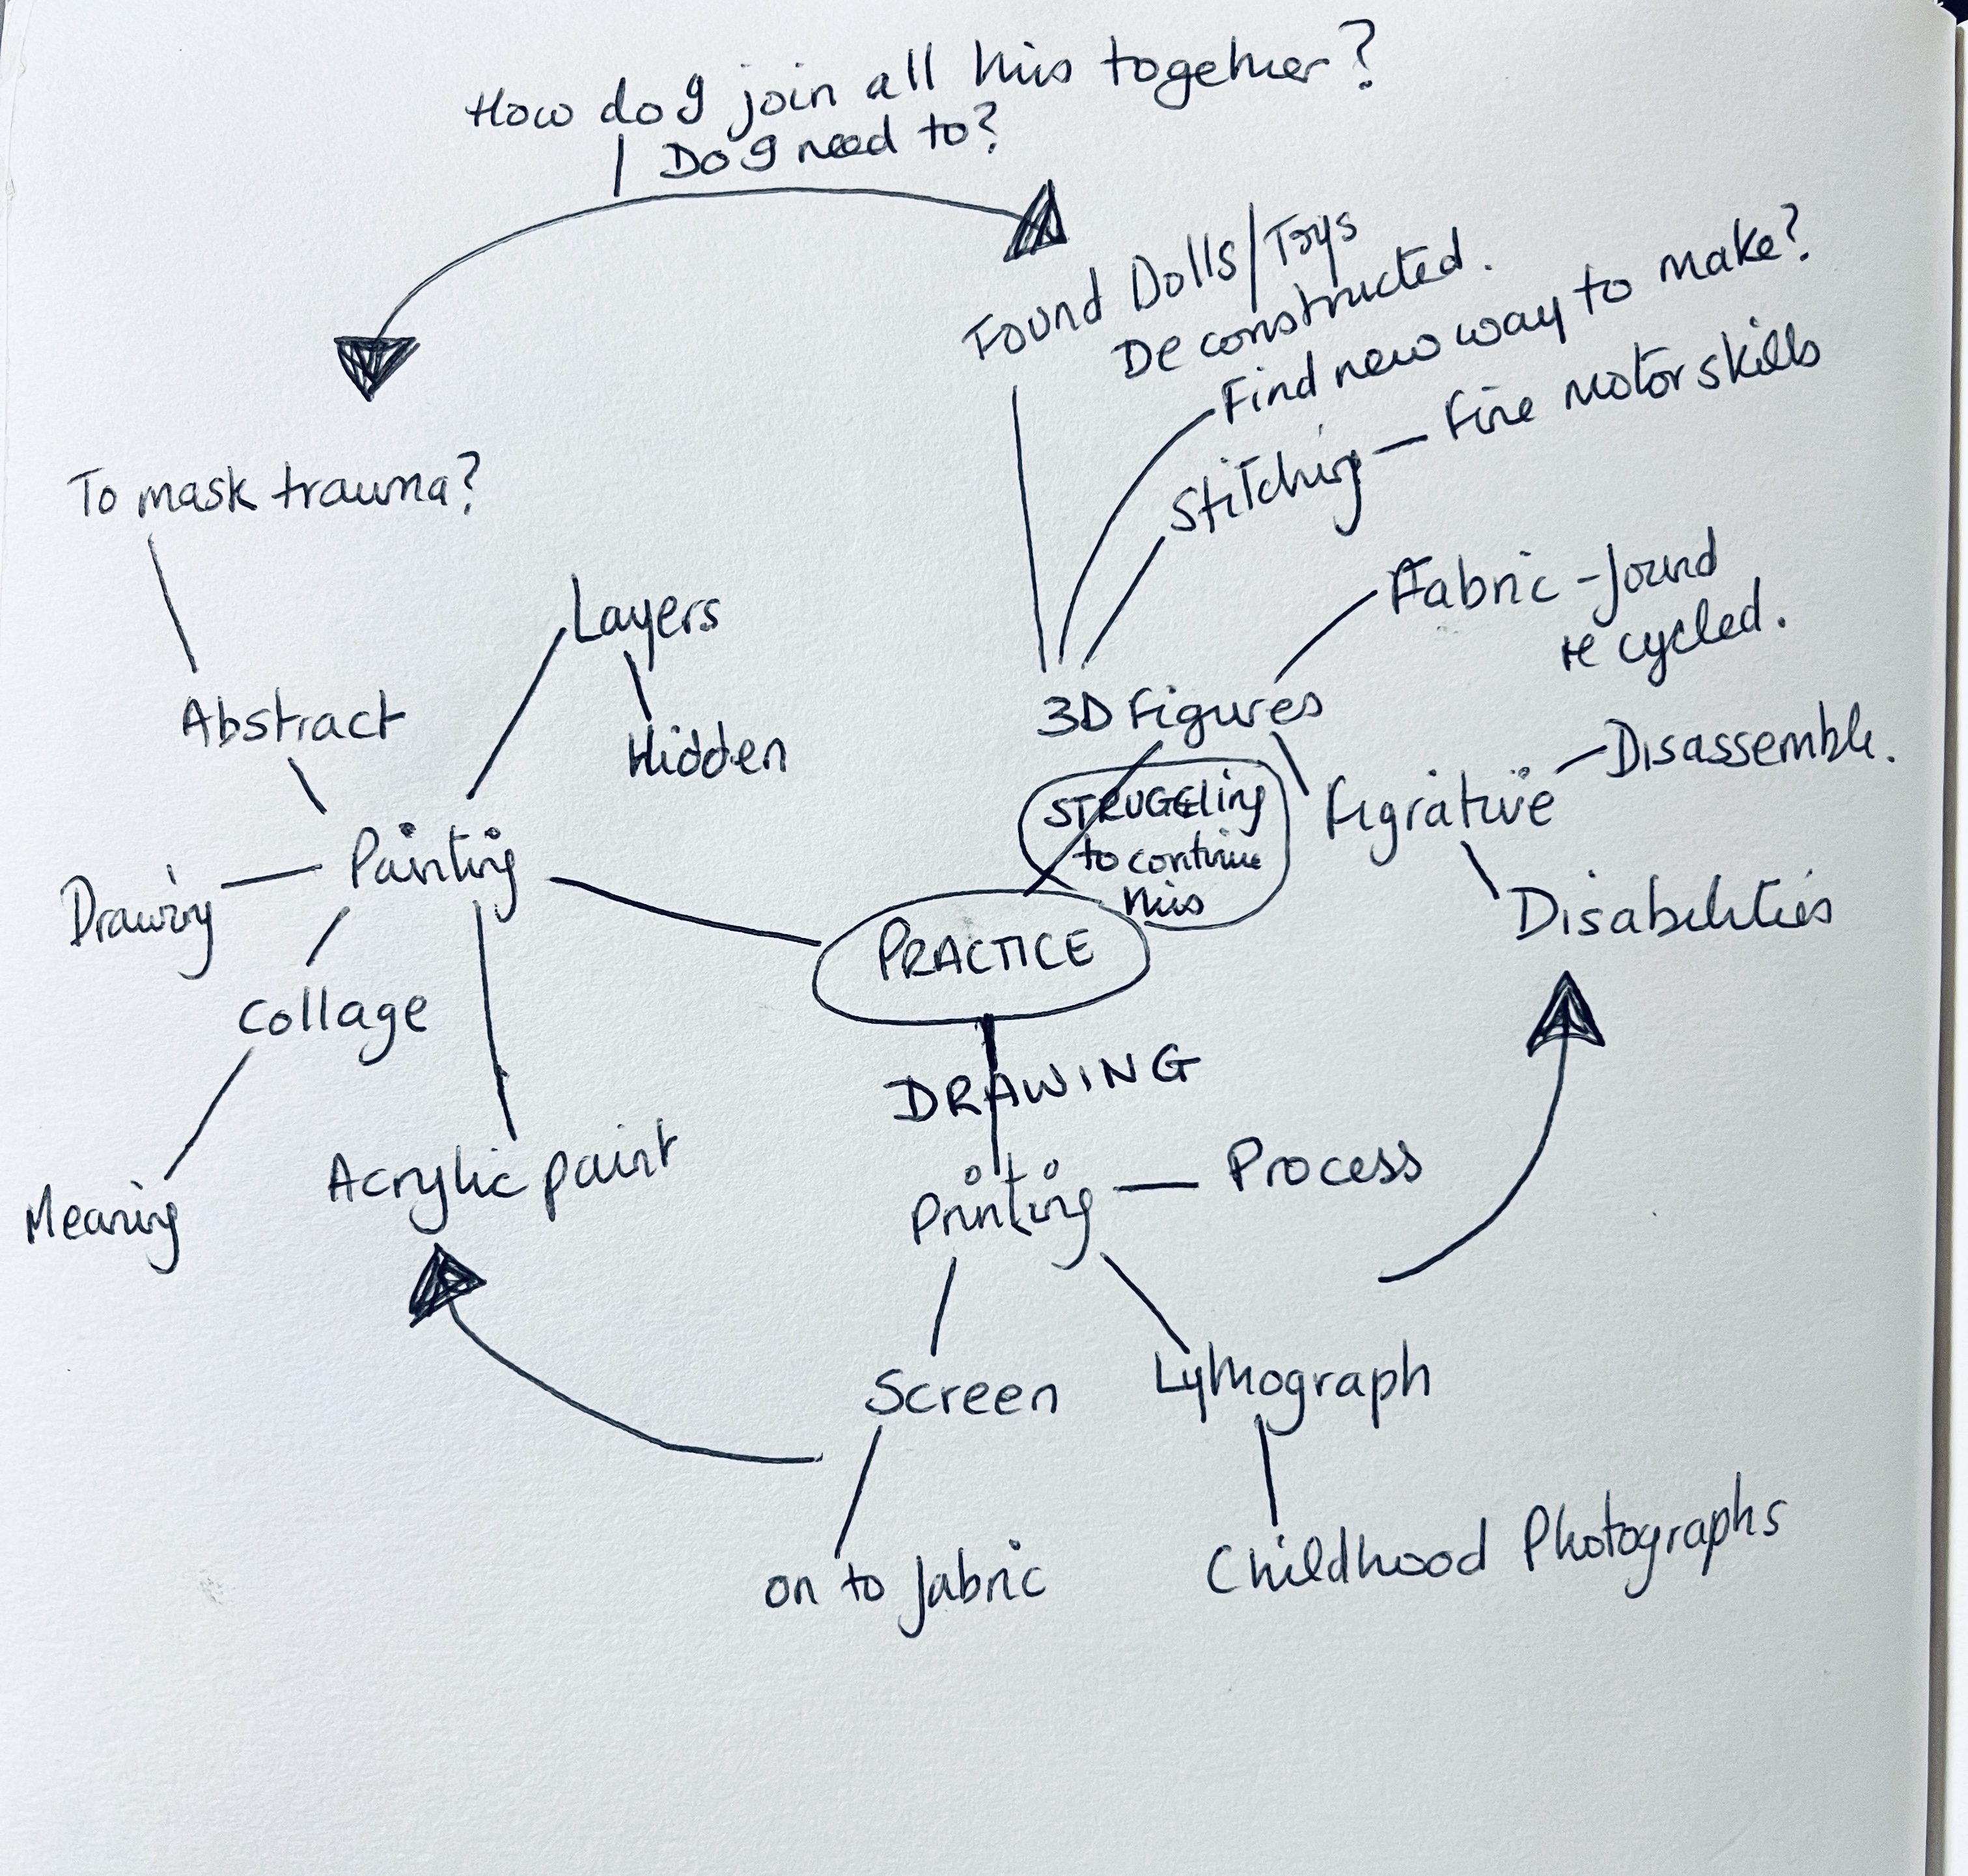 How do I join all this together?
Do I need to?
Found Dolls/Toys
Deconstructed.
Find new way to make?
Stitching — Fine motor skills
To mask trauma?
Fabric - found
recycled.
Layers
Hidden
Abstract
3D Figures
Disassemble.
STRUGGLing
to continue
this
Figrative
Painting
Drawing
Disabilities
PRACTICE
Collage
DRAWING
Acrylic paint
Meaning
Printing — Process
Screen
Lythograph
on to fabric
Childhood Photographs